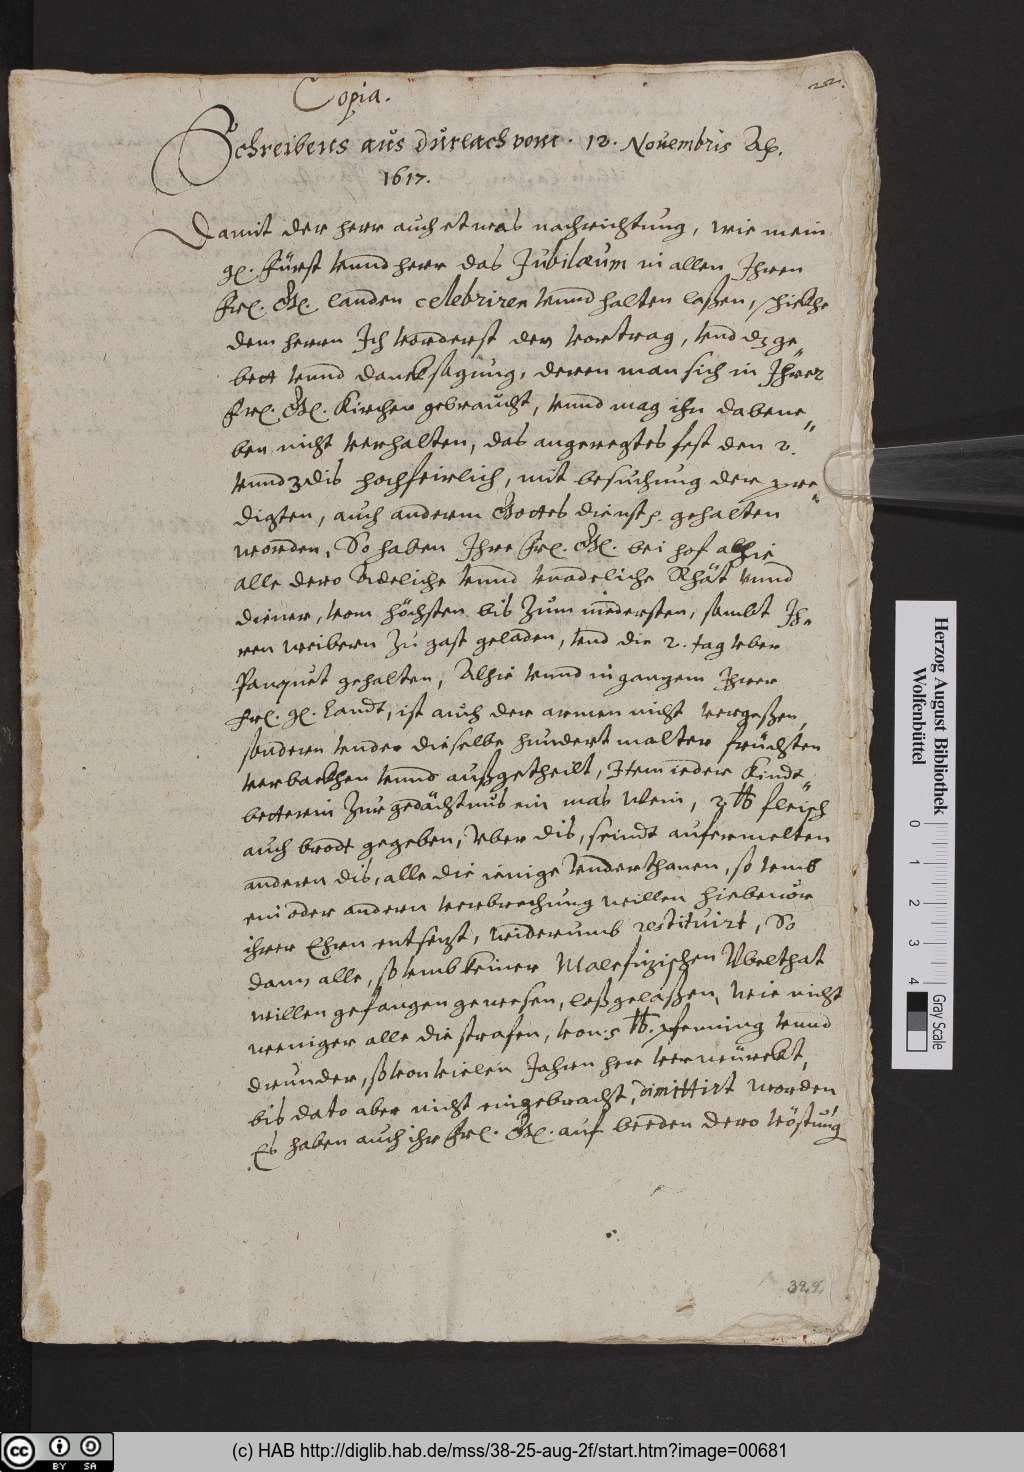 252.
Copia.
Schreibens aus Durlach vom. 12. Novembris Ao.
1617.
Damit der herr auch etwas nachrichtung, wie mein
gl. Fürst vnnd herr das Jubilæum in allen Ihren
Frl. Gl. landen celebriren vnnd halten laßen, schickhe
dem herrn Ich vorderst den vortrag, vnd dz ge
bett vnnd dancksagung, deren man sich in Ihrer
Frl. Gl. Kirchen gebraucht, vnnd mag ihn dabene
ben nicht verhalten, das angeregtes fest den 2.
vnnd 3 dis hochfeirlich, mit besuchung der pre
digten, auch anderm Gottes dienst gehalten
worden, So haben Ihre Frl. Gl. bei hof alhie
alle dero Adeliche vnnd vnadeliche Rhät vnnd
diener, vom höchsten bis zum niedersten, sambt Ih
ren weibern zu gast geladen, vnd die 2. tag vber
Panquet gehalten, Alhie vnnd in ganzem Ihrer
Frl. gl. Landt, ist auch der armen nicht vergeßen,
sonderen vnder dieselbe hundert malter früchten
verbackhen vnnd außgetheilt, Item ieder Kindt
betterin zur gedächtnus ein mas Wein, 2 lb fleisch
auch brodt gegeben, Vber dis, seindt auf ermelten
anderen dis, alle die ienige Vnderthanen, so vmb
ein oder andern verbrechung willen hiebevor
ihrer Ehrn entsetzt, widerumb restituirt, So
dann alle, so vmb keiner Malefizischen Vbelthat
willen gefangen gewesen, loßgelaßen, Wie nicht
weniger alle die strafen, von 5 lb. pfenning vnnd
drunder, so von vielen Jahren her verwürckt,
bis dato aber nicht eingebracht, dimittirt worden
Es haben auch ihr Frl. Gl. auf beeden dero Vöstung
Herzog August Bibliothek
Wolfenbüttel
0 1 2 3 4
Gray Scale
cc BY SA
(c) HAB http://diglib.hab.de/mss/38-25-aug-2f/start.htm?image=00681